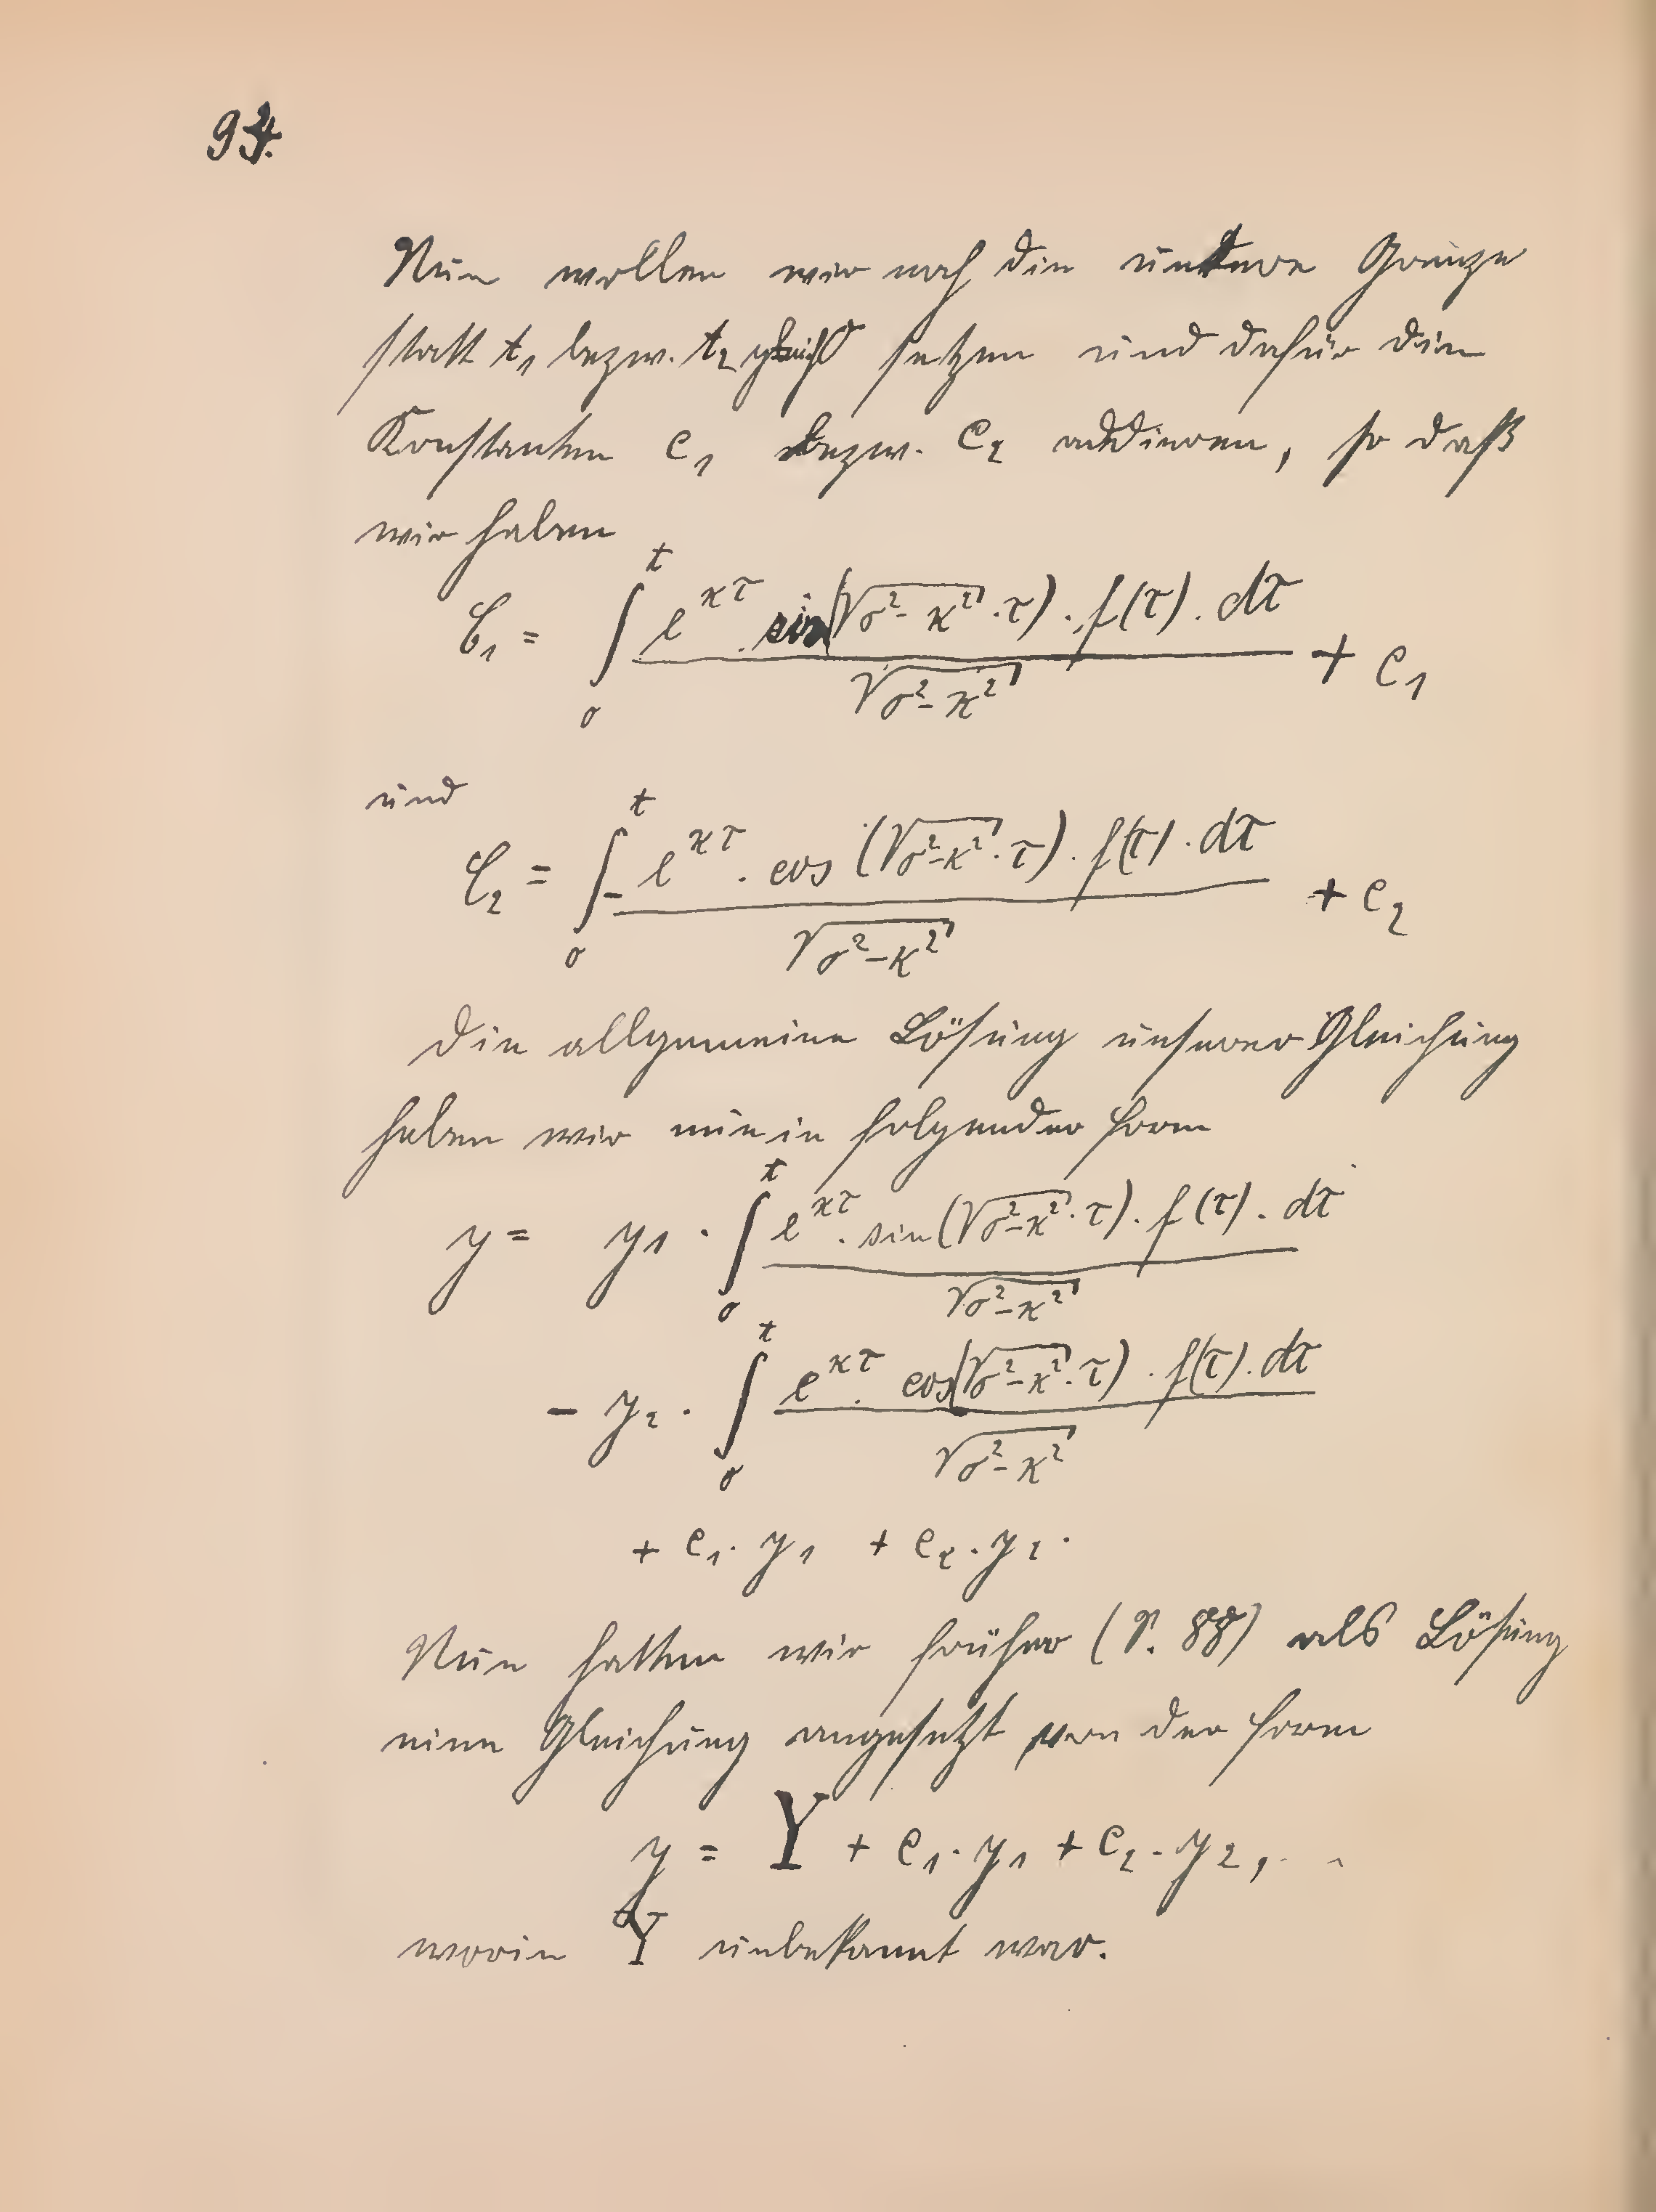 94.
Nun wollen wir noch die untere Grenze
statt t₁ bezw. t₂ gleich 0 setzen und dafür die
Konstanten c₁ bezw. c₂ addieren, so daß
wir haben
C₁ = ∫₀ᵗ e^{κτ} · sin(√(σ²-κ²) · τ) · f(τ) · dτ / √(σ²-κ²) + c₁
und
C₂ = ∫₀ᵗ - e^{κτ} · cos(√(σ²-κ²) · τ) · f(τ) · dτ / √(σ²-κ²) + c₂
Die allgemeine Lösung unserer Gleichung
haben wir nun in folgender Form
y = y₁ · ∫₀ᵗ e^{κτ} · sin(√(σ²-κ²) · τ) · f(τ) · dτ / √(σ²-κ²)
- y₂ · ∫₀ᵗ e^{κτ} · cos(√(σ²-κ²) · τ) · f(τ) · dτ / √(σ²-κ²)
+ c₁ · y₁ + c₂ · y₂ .
Nun hatten wir früher (S. 88) als Lösung
eine Gleichung angesetzt von der Form
y = Y + c₁ · y₁ + c₂ · y₂ ,
worin Y unbekannt war.